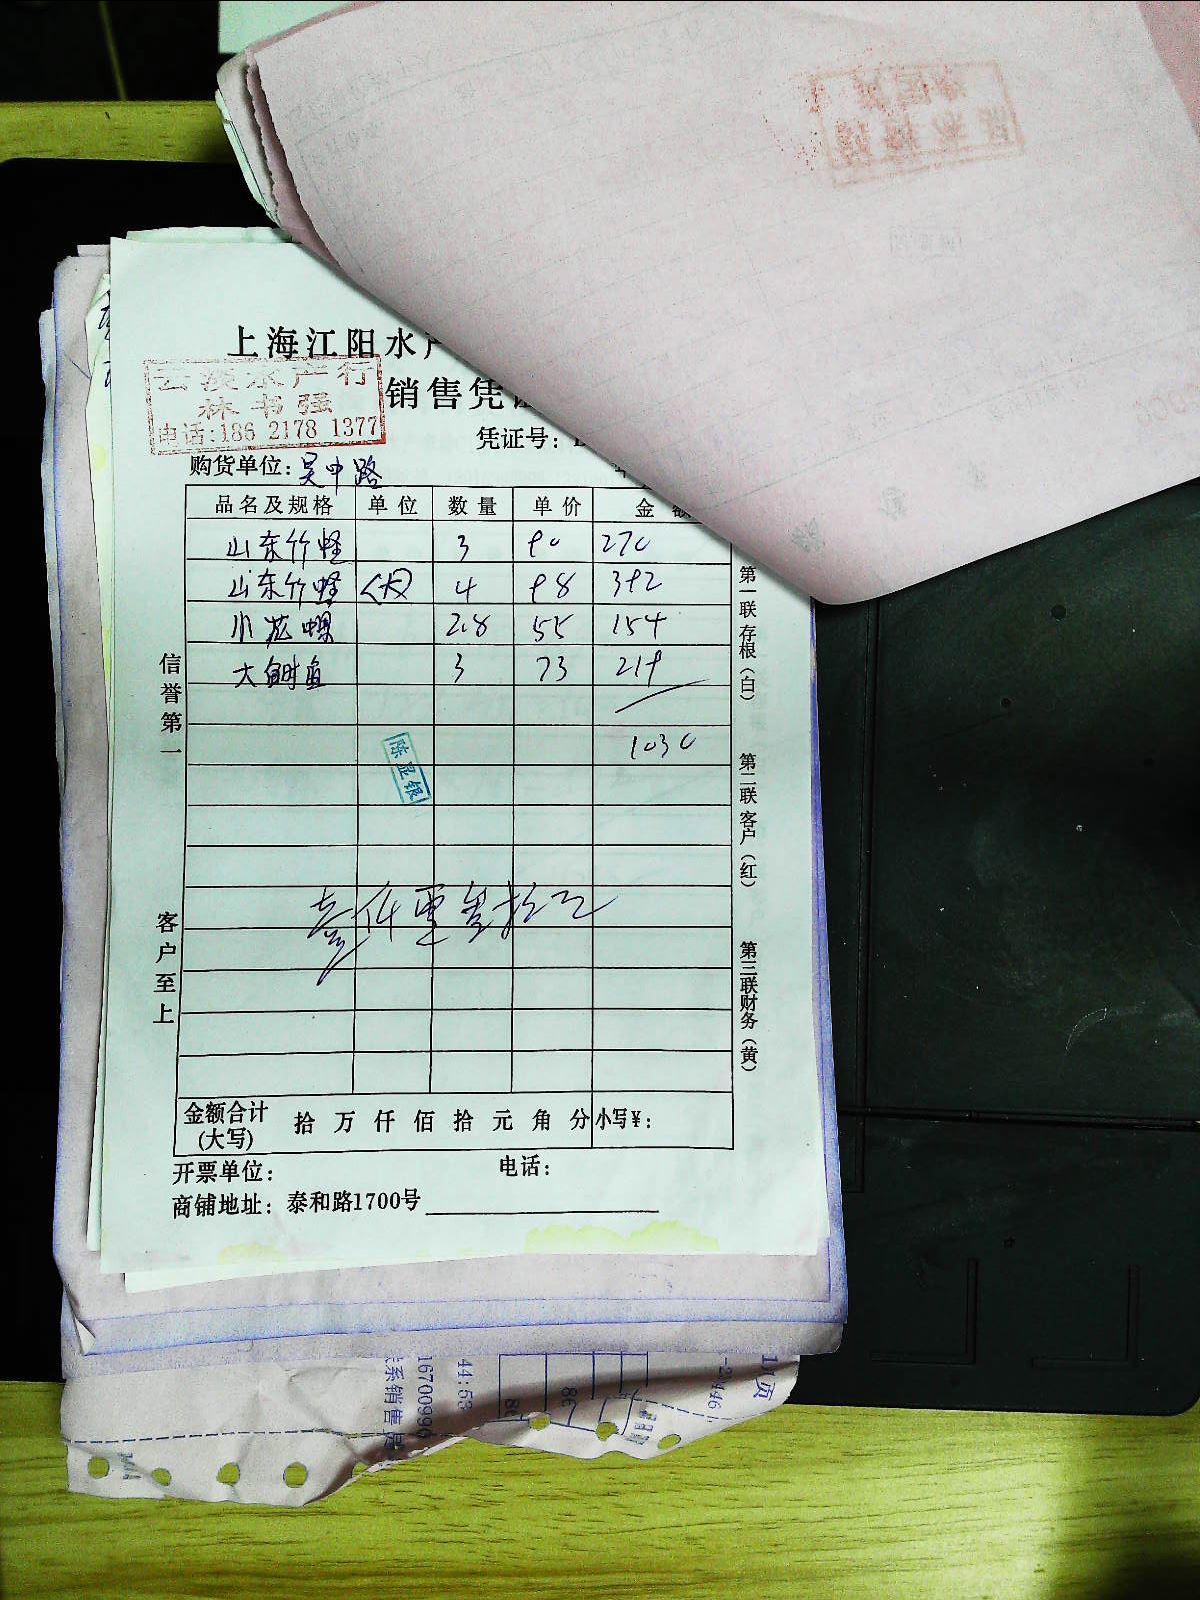 上海江阳水产
销售凭证
林书强
电话:186 2178 1377
凭证号:
购货单位: 吴中路
品名及规格 单位 数量 单价 金额
山东竹蛏 3 90 270
山东竹蛏 (大) 4 98 392
小花螺 2.8 55 154
大鲥鱼 3 73 219
1030
陈显银
壹仟零叁拾元
信誉第一
客户至上
第一联存根(白)
第二联客户(红)
第三联财务(黄)
金额合计(大写) 拾 万 仟 佰 拾 元 角 分 小写¥:
开票单位: 电话:
商铺地址: 泰和路1700号
联系销售员
1670099
44:53